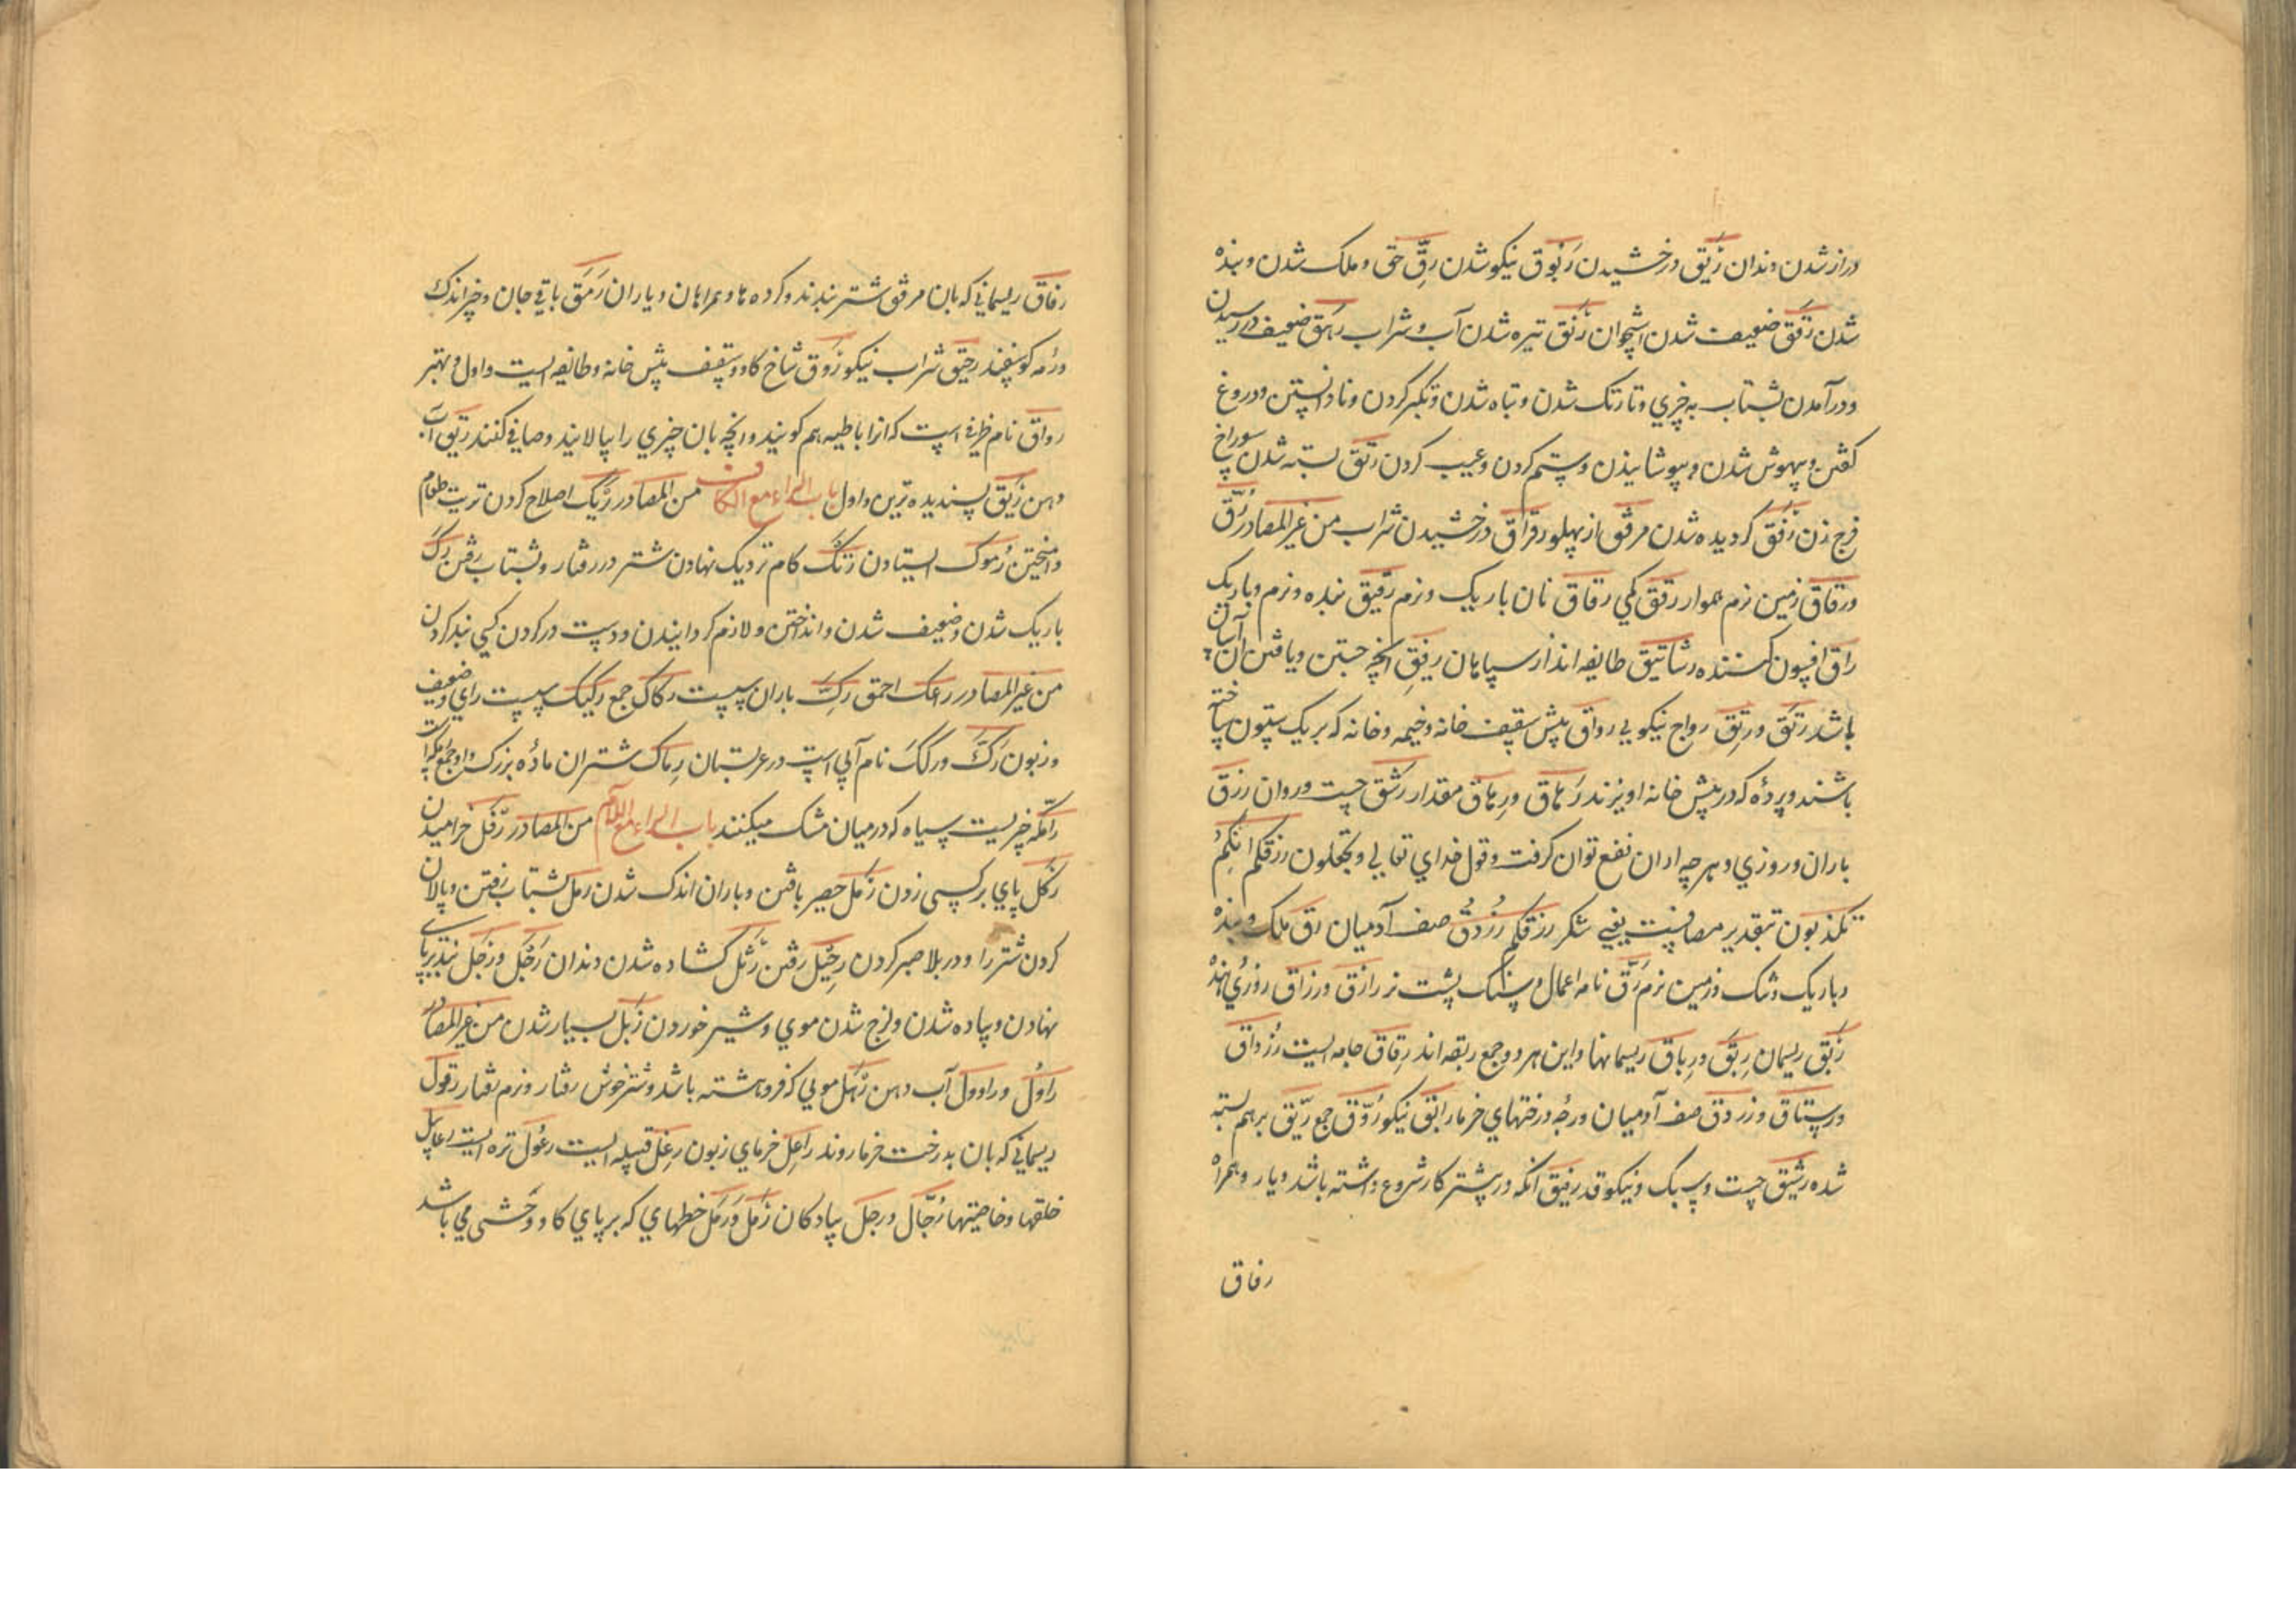 دراز شدن دندان رَیْق درخشیدن رَنُوق نیکو شدن رِقّ حق و ملک شدن و بنده
شدن رَقَق ضعیف شدن استخوان رَنْق تیره شدن آب و شراب رَهَق ضعیف در رسیدن
و درآمدن بشتاب به چیزی و تاریک شدن و تباه شدن و تکبر کردن و نادانستن و دروغ
گفتن و بیهوش شدن و بپوشانیدن و ستم کردن و عیب کردن رَتَق بسته شدن سوراخ
فرج زن رَفَق گردیده شدن مرفق از پهلو رقراق درخشیدن شراب من غیر المصادر رُقّ
ورقاق زمین نرم هموار رقق کمی رقاق نان باریک و نرم رقیق بنده و نرم و باریک
راق افسون کننده رشاتیق طایفه اند از سپاهان رفیق انچه جستن و یافتن آن آسان
باشد رَیَق و ریّق رواج نیکویی رواق پیش سقف خانه و خیمه و خانه که بر یک ستون ساخته
باشند و پردهٔ که در پیش خانه اویزند رَهاق و رِهاق مقدار رشق چست و روان رزق
باران و روزی و هر چه از ان نفع توان گرفت و قول خدای تعالی و تجعلون رزقکم انکم
تکذبون بتقدیر مضافست یعنی شکر رزقکم رزدق صف آدمیان رق ملک و بنده
و باریک و تنک و زمین نرم رَقّ نامه اعمال و سنگ پشت نر رازق ورزاق روزی دهنده
رَبْق ریسمان رِبَق و رِباق ریسمانها و این هر دو جمع ربقه اند رقاق جامه ایست رُزداق
ورستاق وزردق صف آدمیان و رجهٔ درختهای خرما رایق نیکو رُوّق جمع ریّق بر هم بسته
شده رشیق چست و سبک و نیکو قد رفیق انکه در پیشتر کار شروع داشته باشد و یار و همراه
رفاق
رفاق ریسمانی که بان مرفق شتر بندند و گروه ها و همراهان و یاران رَمَق باقی جان و چیز اندک
ورمه گوسفند رحیق شراب نیکو رَوْق شاخ گاو و سقف پیش خانه و طائفه ایست و اول و مهتر
رواق نام ظرفی است که انرا باطیه هم گویند و انچه بان چیزی را بپالایند و صافی کنند ریق آب
دهن رَیّق پسندیده ترین و اول باب الراء مع الکاف من المصادر رَبْک اصلاح کردن ترید طعام
و امیختن رُموک ایستادن رَتَک گام نزدیک نهادن شتر در رفتار و بشتاب رفتن رکّ
باریک شدن و ضعیف شدن و انداختن و لازم گردانیدن و دست در گردن کسی بند کردن
من غیر المصادر رعک احمق رِکّ باران سست رکاک جمع رکیک سست رای و ضعیف
و زبون رَکّ و رکک نام آبی است در عربستان رِماک شتران مادهٔ بزرگ
رامکه چیزیست سیاه که در میان مشک میکنند باب الراء مع اللام من المصادر رَفْل خرامیدن
رَکْل پای بر کسی زدن رَمْل حصیر بافتن و باران اندک شدن رمل بشتاب رفتن و پالان
کردن شتر را و در بلا صبر کردن رحیل رفتن رَتَل گشاده شدن دندان رَجَل و رَجْل بند بر پای
نهادن و پیاده شدن و لزج شدن موی و شیر خوردن رَبْل بسیار شدن من غیر المصادر
راوُل و راوول آب دهن رَهَل مویی که فروهشته باشد و شتر خوش رفتار و نرم رفتار رقول
ریسمانی که بان بدرخت خرما روند راعِل خرمای زبون رِعْل قبیله ایست رعُول تره ایست رعابیل
خلقها و خاصیتها رُجّال و رجل پیادگان رَمْل و رَمَل خطهای که بر پای گاو وحشی می باشد